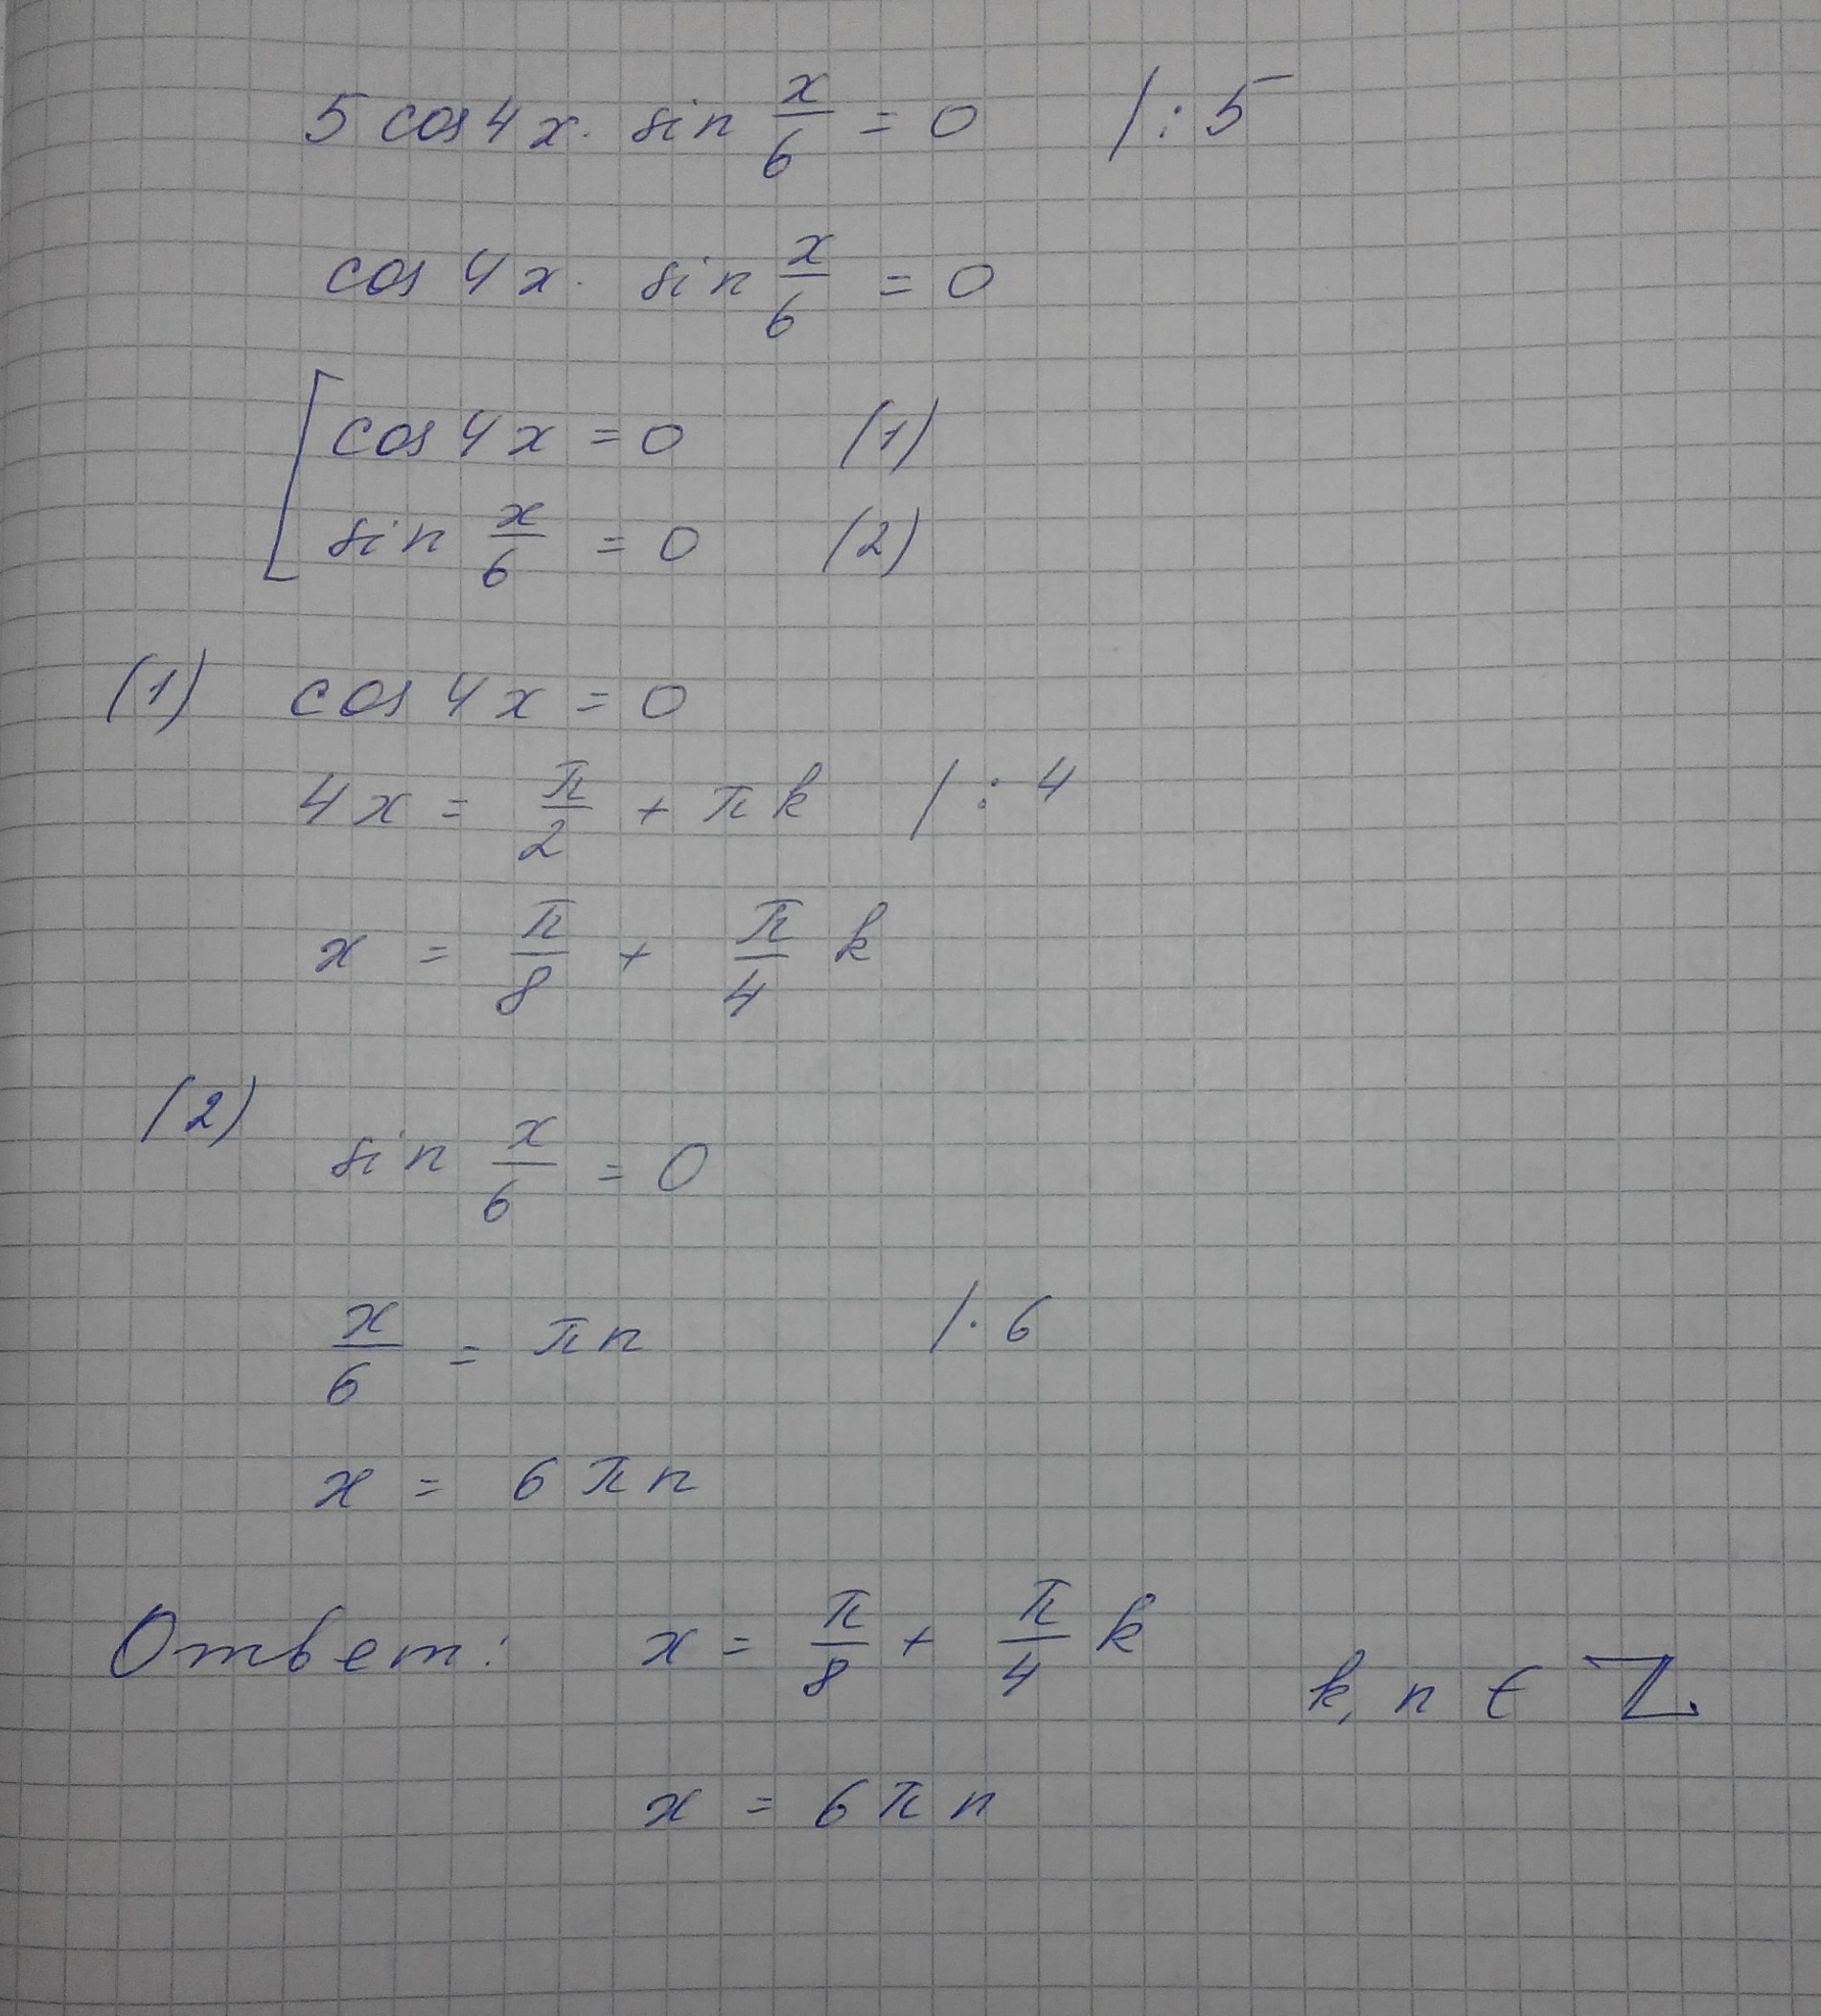 5 cos 4x · sin x/6 = 0 /: 5
cos 4x · sin x/6 = 0
[ cos 4x = 0 (1)
sin x/6 = 0 (2)
(1) cos 4x = 0
4x = π/2 + πk /: 4
x = π/8 + π/4 k
(2) sin x/6 = 0
x/6 = πn /· 6
x = 6πn
Ответ: x = π/8 + π/4 k k, n ∈ ℤ.
x = 6πn